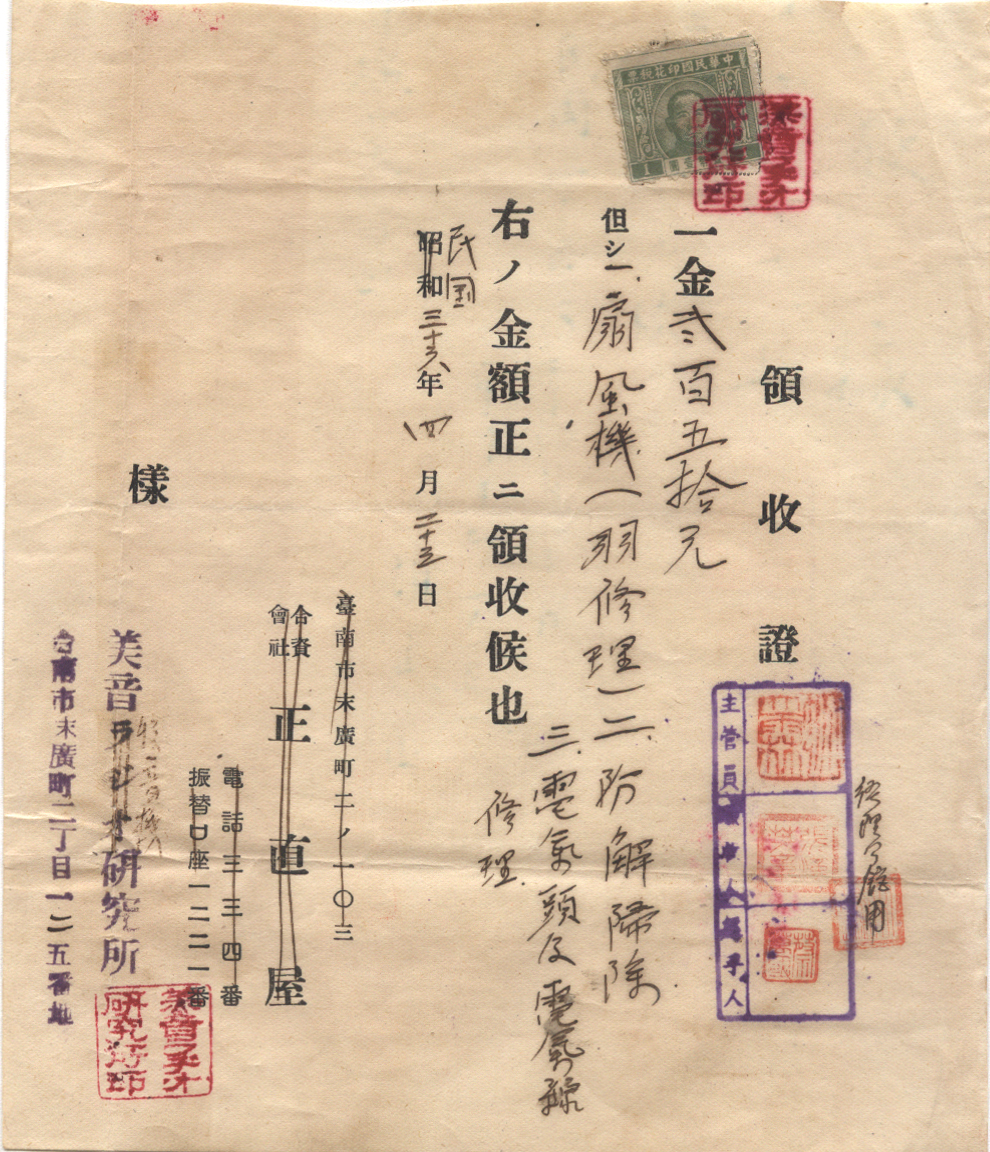 中華民國印花稅票
1
領收證
一金弐百五拾元
但シ一、扇風機(羽修理)二、分解掃除
三、電気頭及電気線
修理
右ノ金額正ニ領收候也
民国
昭和三十六年四月二十三日
臺南市末廣町二ノ一〇三
合資會社正直屋
電話三三四番
振替口座一二二一番
樣
美音ラヂオ研究所
台南市末廣町二丁目一二五番地
主管員
經手人
修理了館用